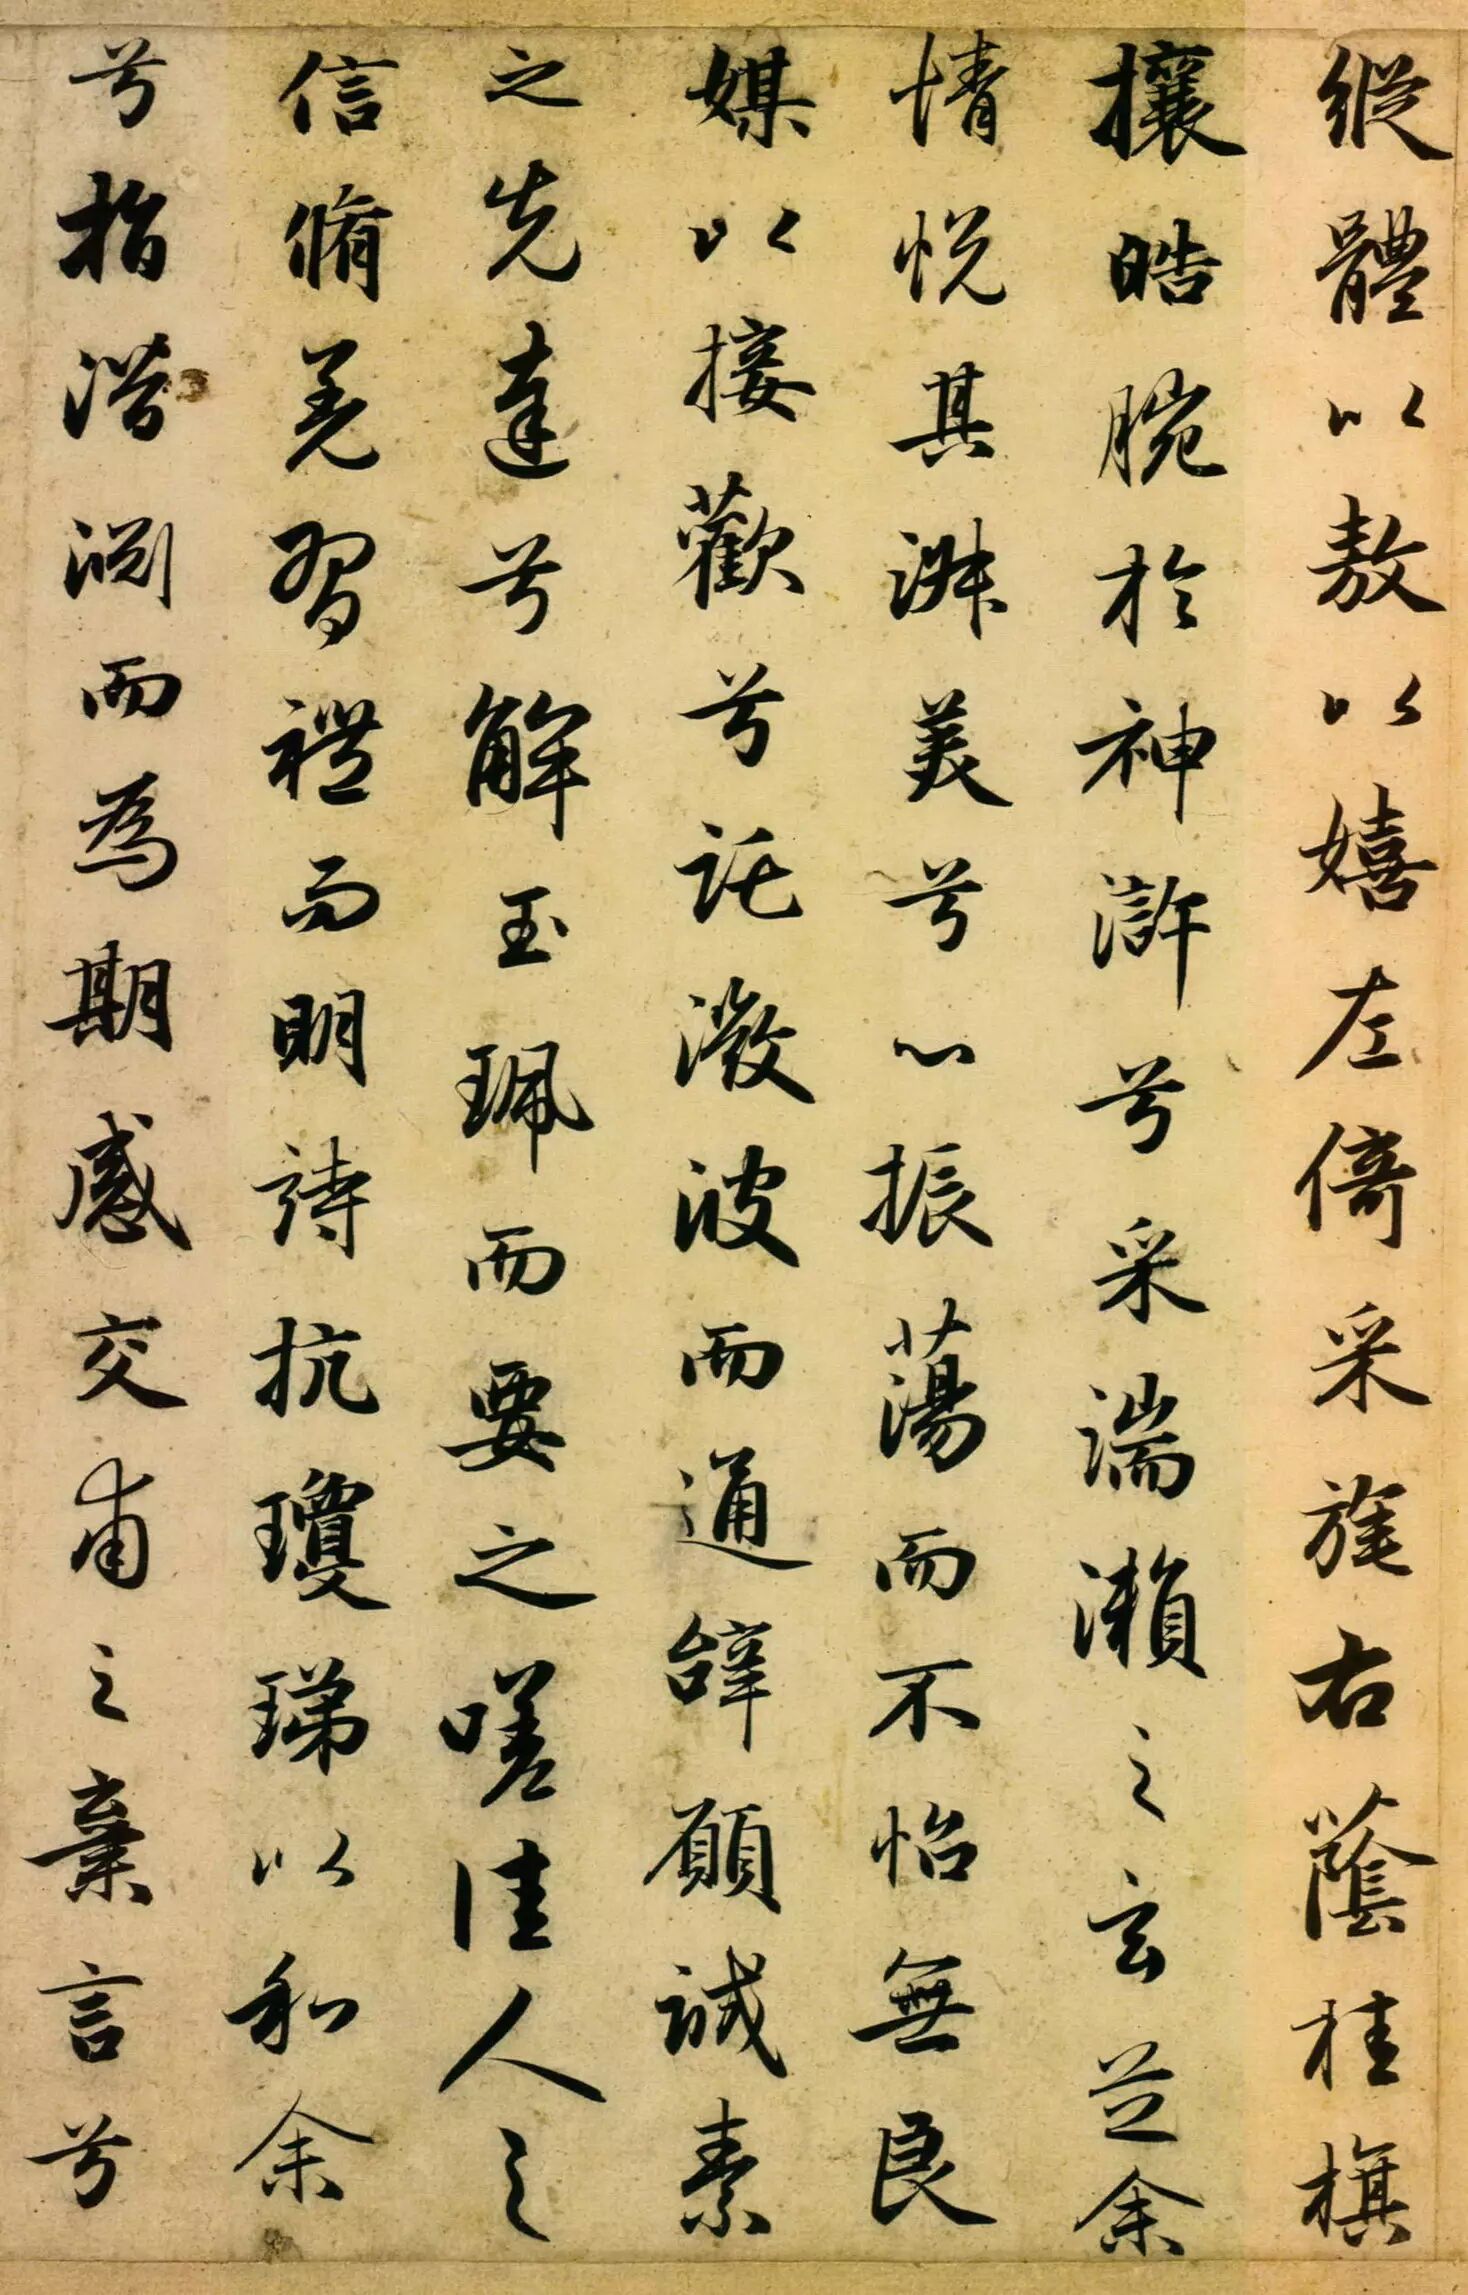 縱體以敖以嬉左倚采旄右蔭桂旗
攘皓腕於神滸兮采湍瀨之玄芝余
情悅其淑美兮心振蕩而不怡無良
媒以接歡兮託微波而通辭願誠素
之先達兮解玉珮而要之嗟佳人之
信脩羌習禮而明詩抗瓊珶以和余
兮指潛淵而為期感交甫之棄言兮